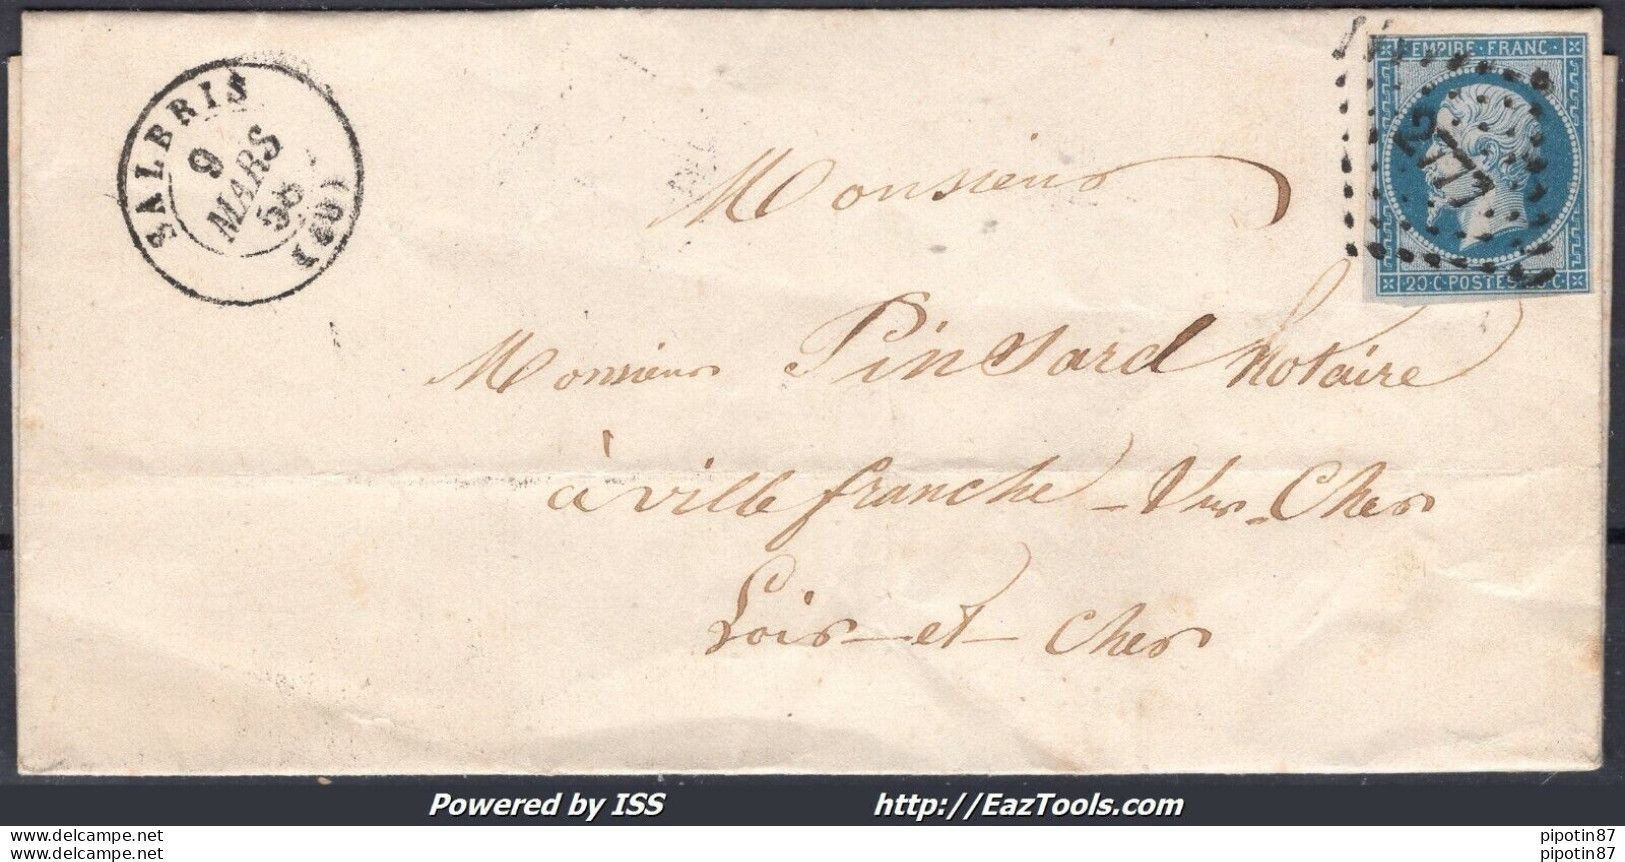 SALBRIS
9
MARS
58
(40)
EMPIRE·FRANC·
2777
20·C·POSTES·20·C·
Monsieur
Monsieur Pinsard Notaire
à villefranche - sur-Cher
Loir-et-Cher
Powered by ISS http://EazTools.com
www.delcampe.net pipotin87
www.delcampe.net pipotin87